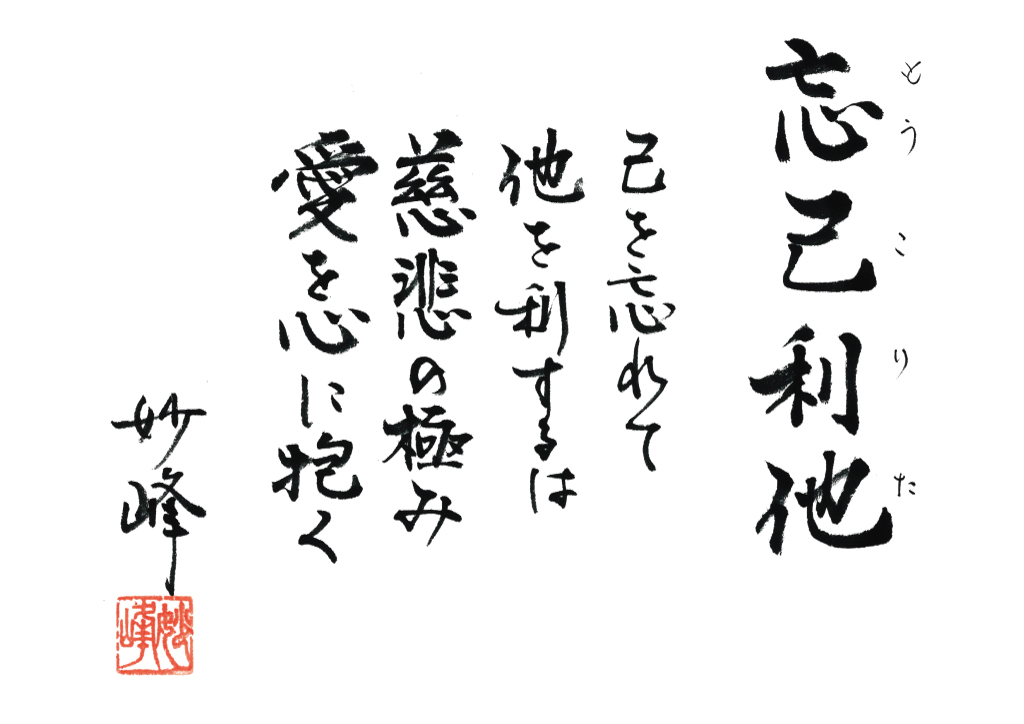 忘己利他
とうこりた
己を忘れて
他を利するは
慈悲の極み
愛を心に抱く
妙峰
妙峰